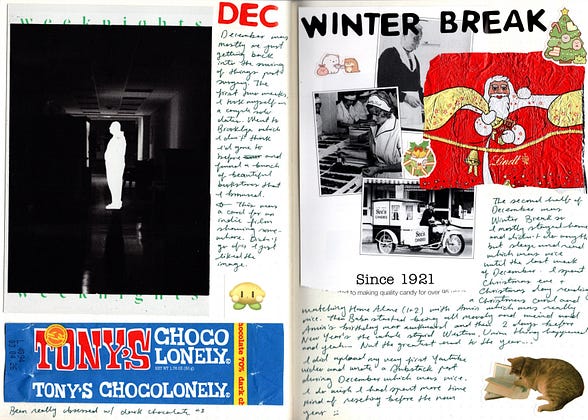 weeknights
DEC
December was
mostly me just
getting back
into the swing
of things post
surgery. The
first two weeks,
I took myself on
a couple solo
dates. Went to
Brooklyn which
I didn't think
I'd gone to
before and
found a bunch
of beautiful
bookstores that
I browsed.
This was
a card for an
indie film
showing some-
where. Didn't
go after I just
liked the
image.
weeknights
TONY'S CHOCO
LONELY.
NET WT 1.76 OZ (50 g)
TONY'S CHOCOLONELY.
chocolate 70%
dark
Been really obsessed w/ dark chocolate <3
WINTER BREAK
Lindt
See's
CANDIES
Since 1921
to making quality candy for over 95
The second half of
December was
Winter Break so
I mostly stayed home
and didn't do anything
but sleep and read
which was nice
until the last week
of December. I spent
Christmas eve +
Christmas day reading
a Christmas Carol and
watching Home Alone (1+2) with Annie which was really
nice. Then Baba started being all moody and weird and
Annie's birthday was awkward and then 2 days before
New Year's the whole stupid Western Union thing happened
and yeah... Not the greatest end to the year...
I did upload my very first YouTube
video and wrote a Substack post
during December which was nice.
I do wish I had spent more time
kind of resetting before the new
year